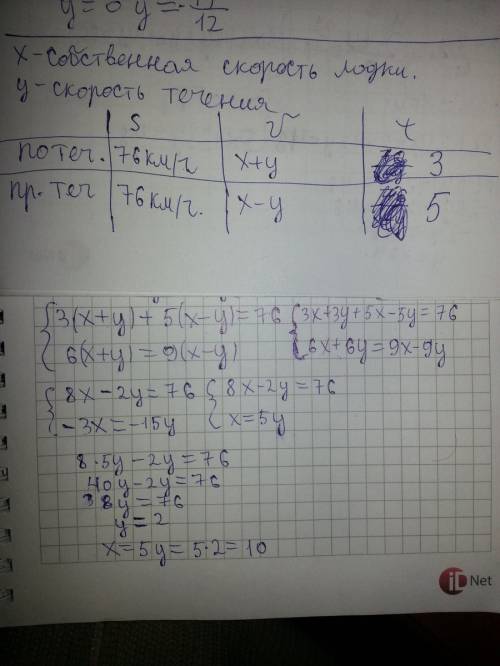 y = 0 y = - 11/12
x - собственная скорость лодки.
y - скорость течения
S V t
по теч. 76 км/ч x+y 3
пр. теч 76 км/ч. x-y 5
{3(x+y)+5(x-y)=76 {3x+3y+5x-5y=76
6(x+y)=9(x-y) 6x+6y=9x-9y
{8x-2y=76 {8x-2y=76
-3x=-15y x=5y
8·5y-2y=76
40y-2y=76
38y=76
y=2
x=5y=5·2=10
iD Net